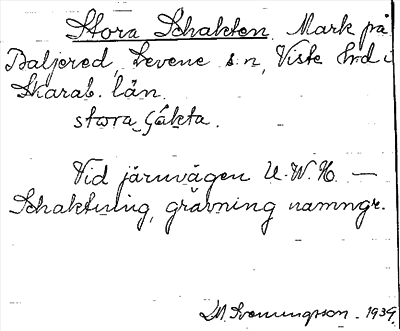 Stora Schakten. Mark på
Baljered, Levene s.n, Viste hrd i
Skarab. län.
stora šákta.
Vid järnvägen U.W.Ho. —
Schaktning, grävning namngr.
LM Svenungsson. 1939.